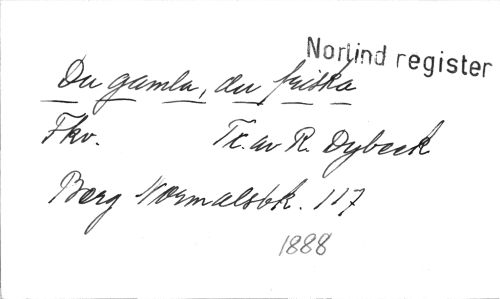 Norlind register
Du gamla, du friska
Fkv. Tx. av R. Dybeck
Berg Normalsbk. 117
1888